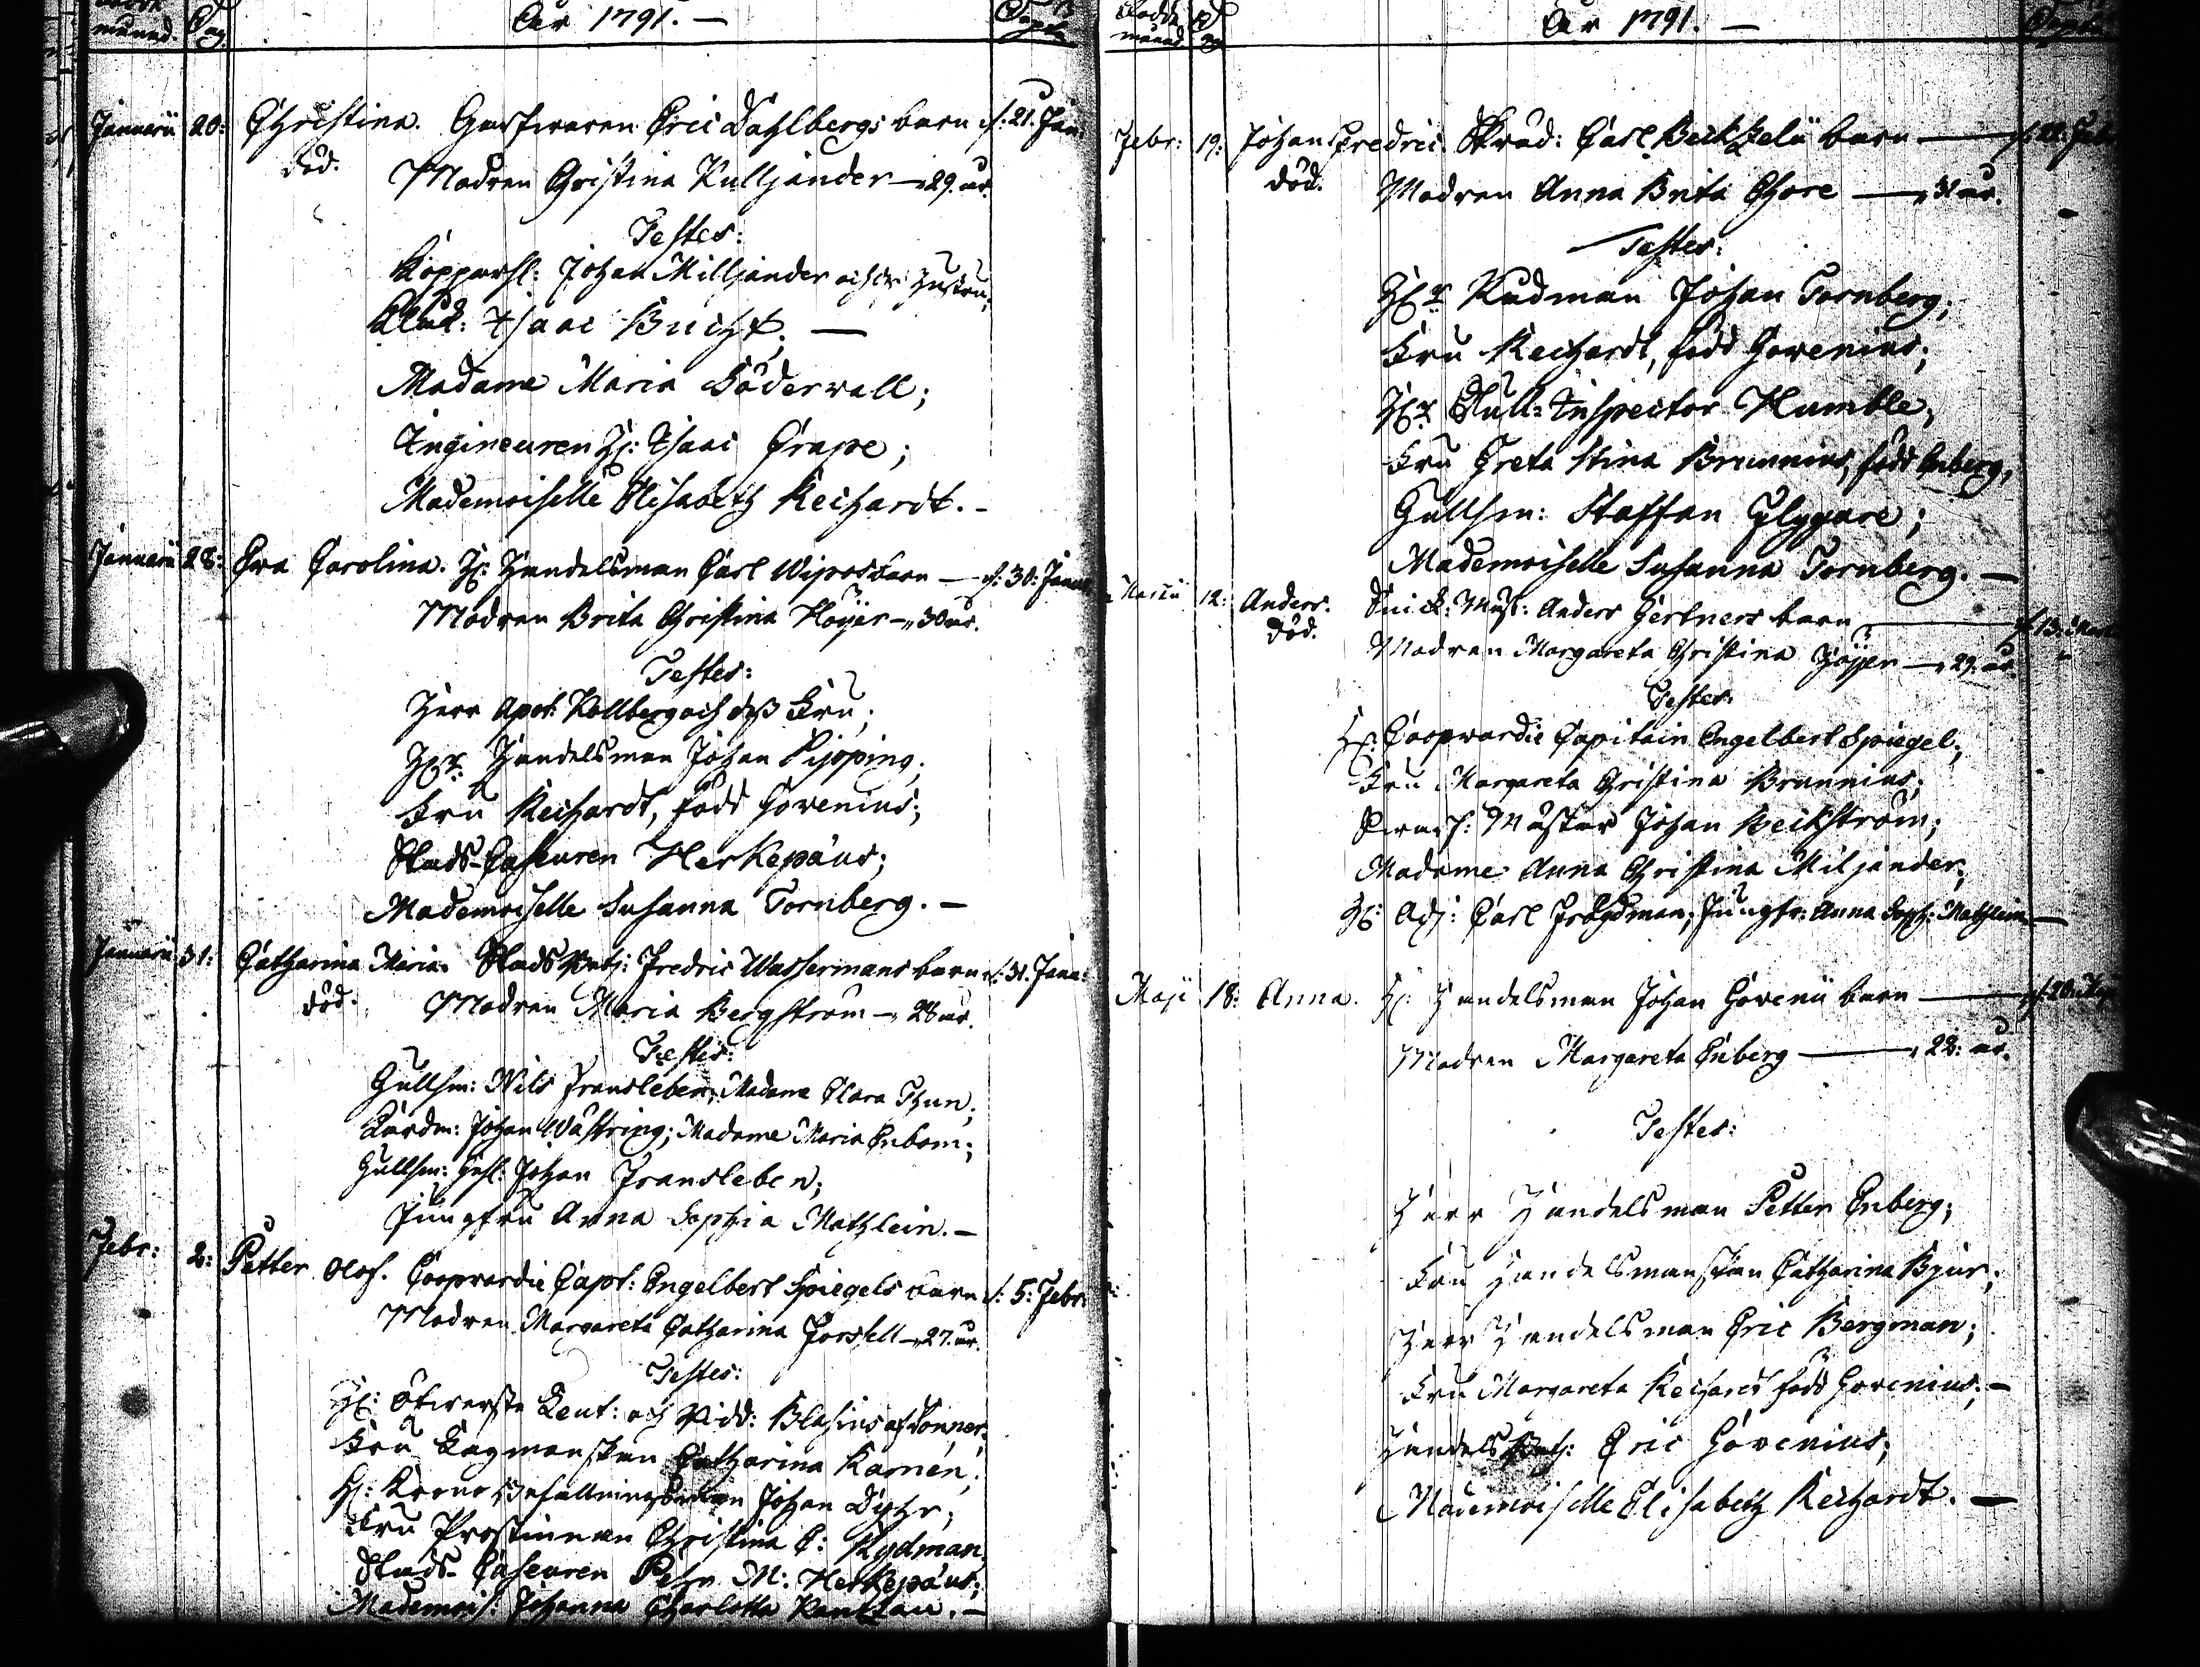 månad. Dag. År 1791. —
Januarii 20: Christina. Garfwaren Eric Dahlbergs barn d: 21. Jan:
död. Modren Christina Kulljander — 29. år.
Testes:
Kopparsl: Johan Milljander och dess hustru;
Isaac Bucht. —
Madame Maria Söderwall;
Ingineuren H: Isaac Grape;
Mademoiselle Elisabeth Reichardt. —
Januarii 28: Eva Carolina. H: Handelsman Carl Wipos barn — d: 30: Janu
Modren Brita Christina Höyer — 30 år.
Testes:
Herr Apot: Kollberg och dess Fru;
Hr. Handelsman Johan Piping;
Fru Reichardt, född Govenius;
Stads-Casseuren Herkepæus;
Mademoiselle Susanna Tornberg. —
Januarii 31: Catharina Maria. Stads Fredric Wassermans barn d: 31. Janu:
död. Modren Maria Bergström — 28 år.
Testes:
Gullsm: Nils Fransleben; Madame Clara Thun;
Johan Wästring; Madame Maria Enbom;
Gullsm: Gesl: Johan Fransleben;
Jungfru Anna Sophia Mathlein. —
Febr: 2: Petter Olof. Coopvardie Capt: Engelbert Spiegels barn d: 5: Febr:
Modren Margareta Catharina Forssell — 27. år.
Testes:
H: Öfwerste Leut: och Ridd: Blasius af Donner;
Fru Lagmanskan Catharina Karnén;
H: Krono Befallningsman Johan Dyhr;
Fru Prostinnan Christina C: Rydman;
Stads-Casseuren Pehr M: Herkepæus;
Mademois: Johanna Charlotta Rantzau. —
Född månad Dag År 1791. —
Febr: 19: Johan Fredric. Skräd: Carl Beckzelii barn — d: 22: Feb
död. Modren Anna Brita Chore — 31 år.
Testes:
Hr. Rådman Johan Tornberg;
Fru Reichardt, född Govenius;
Hr. Tull-Inspector Humble;
Fru Greta Stina Brunnius, född Enberg;
Gullsm: Staffan Glyggare;
Mademoiselle Susanna Tornberg. —
Martii 12: Anders. Snick: Mäst: Anders Gertners barn — d: 13: Mart
död. Modren Margareta Christina Höyer — 29. år
Testes
H: Coopvardie Capitain Engelbert Spiegel;
Fru Margareta Christina Brunnius;
Mästar Johan Beckström;
Madame Anna Christina Miljander;
H: Adj: Carl Frodman; Jungfr: Anna Soph: Mathlein —
Maji 18: Anna. H: Handelsman Johan Govenii barn — d: 20.
Modren Margareta Enberg — 22: år.
Testes:
Herr Handelsman Petter Enberg;
Fru Handelsmanskan Catharina Bjur;
Herr Handelsman Eric Bergman;
Fru Margareta Reichardt född Govenius; —
Handels Eric Govenius;
Mademoiselle Elisabeth Reichardt. —